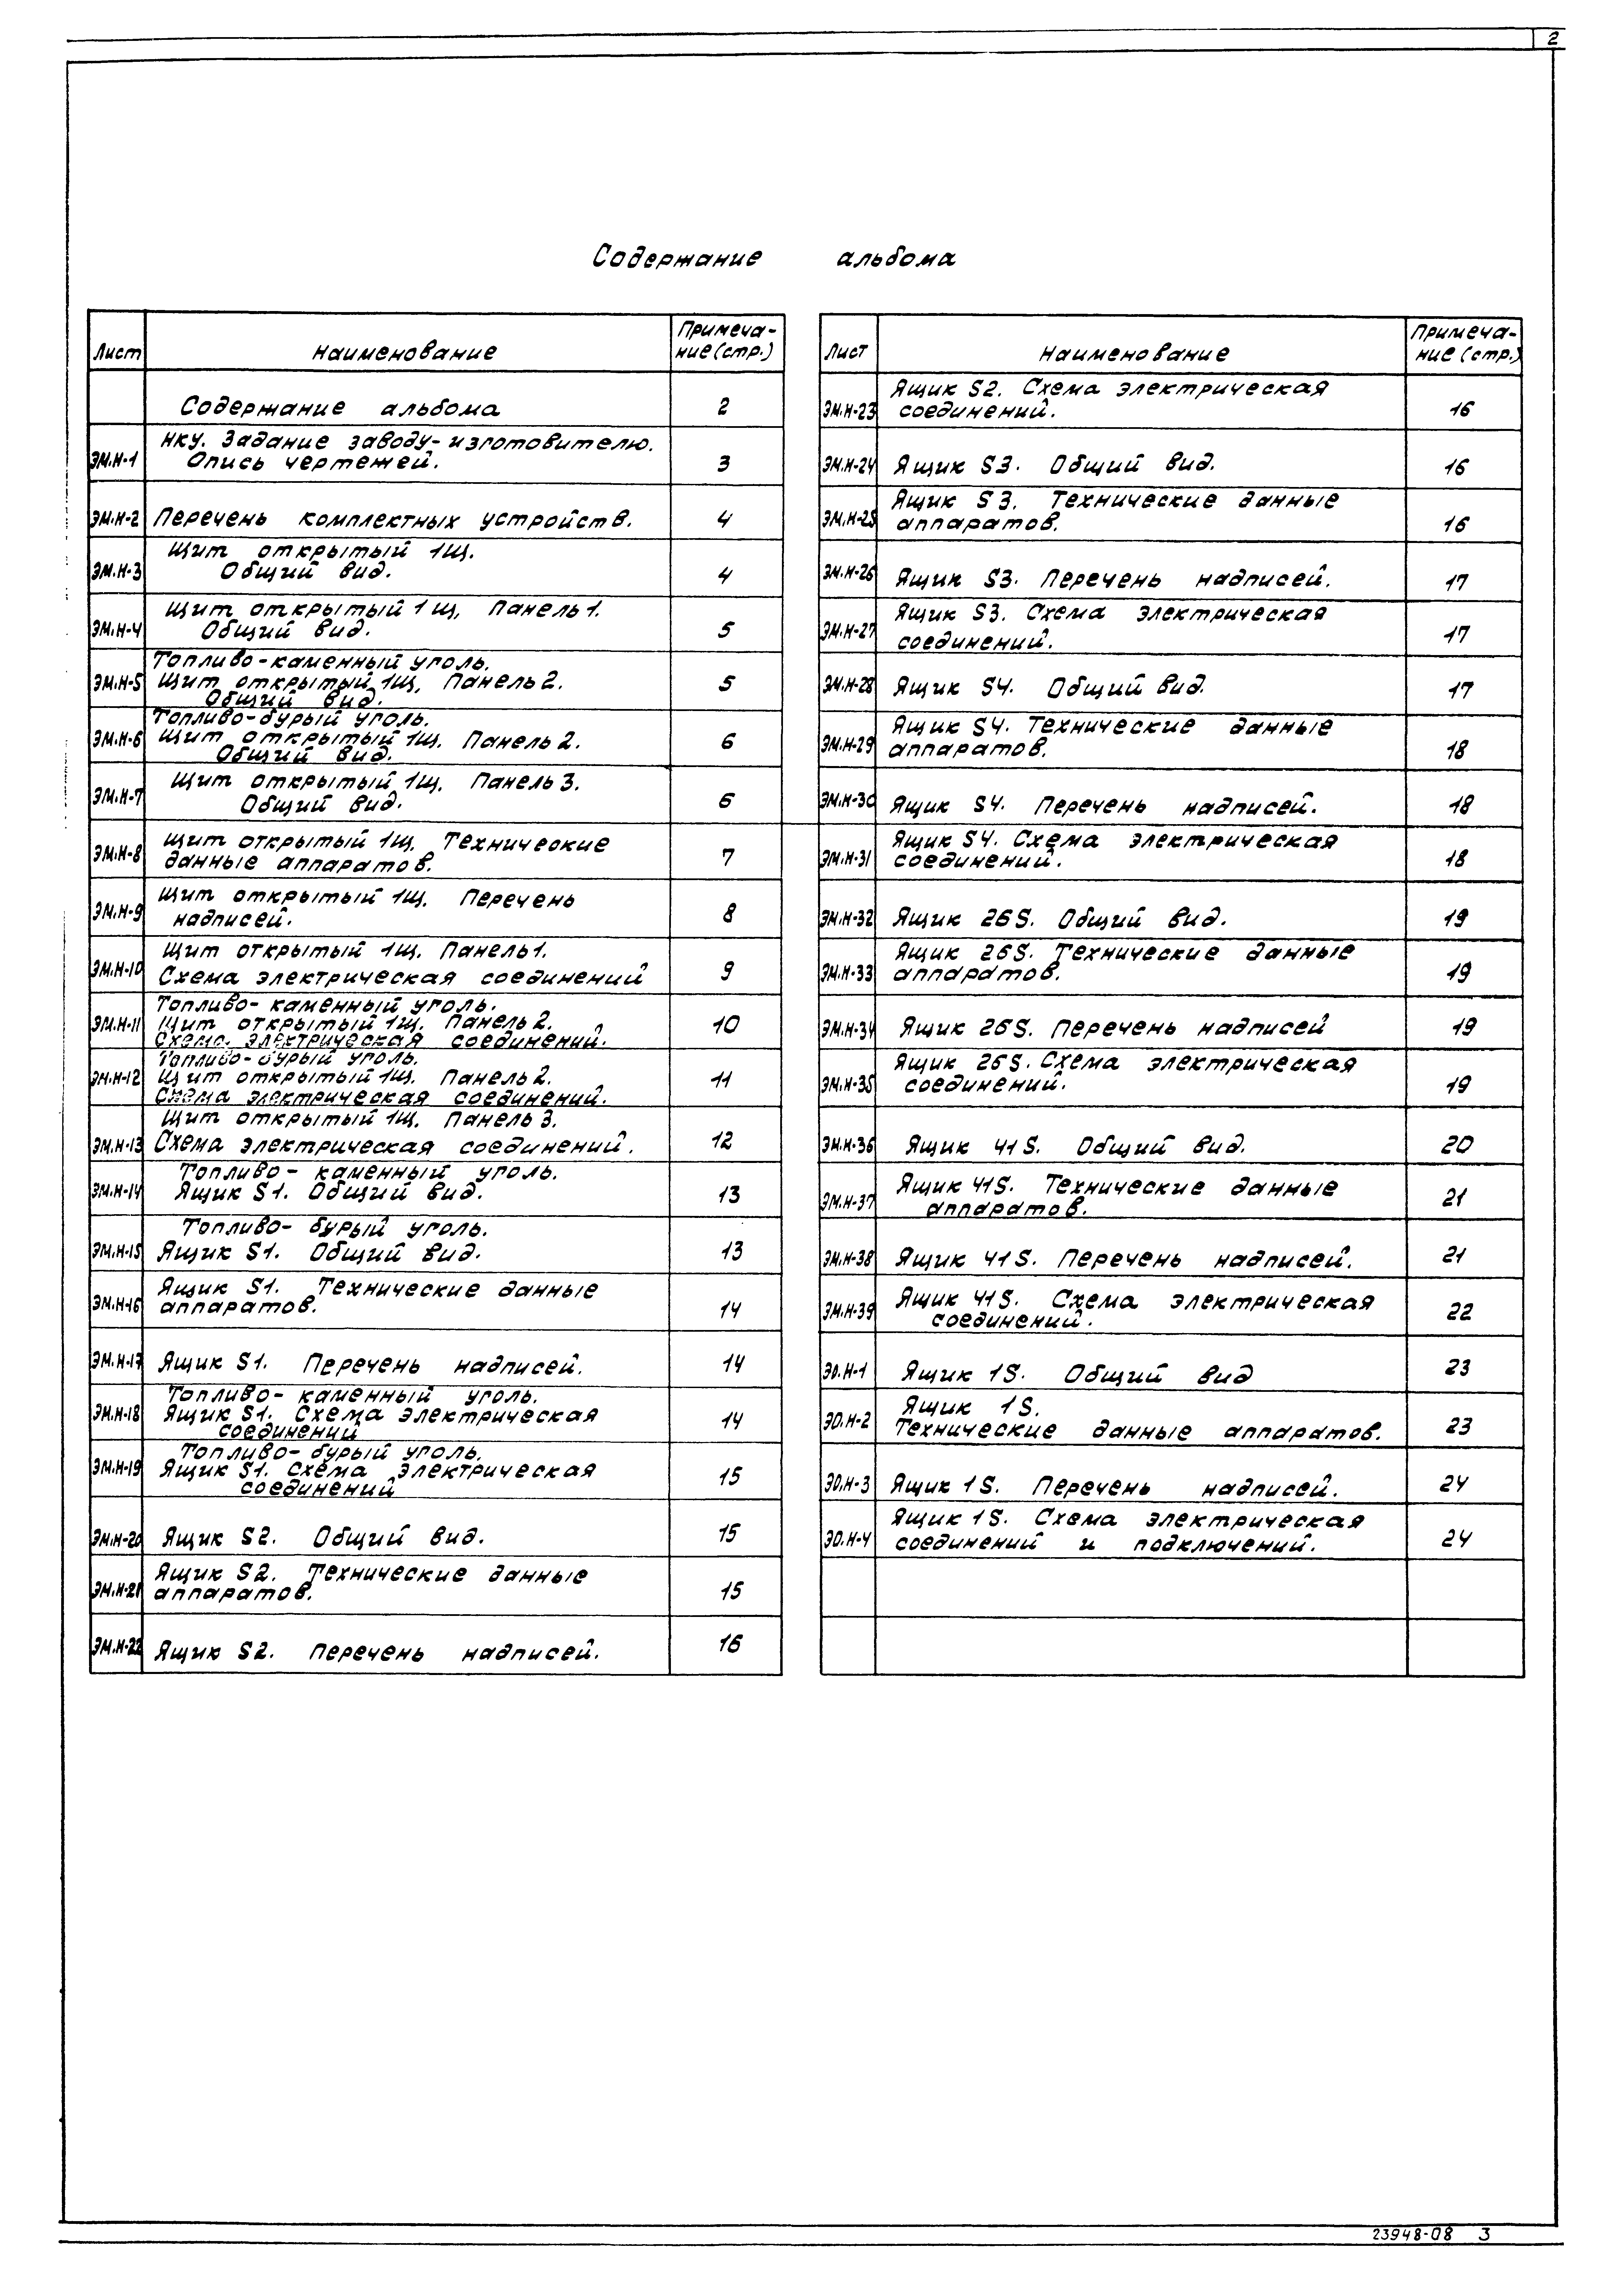 2
Содержание альбома
Лист Наименование Примеча-
ние (стр.)
Содержание альбома 2
НКУ. Задание заводу-изготовителю.
ЭМ.Н-1 Опись чертежей. 3
ЭМ.Н-2 Перечень комплектных устройств. 4
Щит открытый 1Щ.
ЭМ.Н-3 Общий вид. 4
Щит открытый 1Щ, Панель 1.
ЭМ.Н-4 Общий вид. 5
Топливо-каменный уголь.
ЭМ.Н-5 Щит открытый 1Щ, Панель 2. 5
Общий вид.
Топливо-бурый уголь.
ЭМ.Н-6 Щит открытый 1Щ. Панель 2. 6
Общий вид.
Щит открытый 1Щ. Панель 3.
ЭМ.Н-7 Общий вид. 6
Щит открытый 1Щ. Технические
ЭМ.Н-8 данные аппаратов. 7
Щит открытый 1Щ. Перечень
ЭМ.Н-9 надписей. 8
Щит открытый 1Щ. Панель 1.
ЭМ.Н-10 Схема электрическая соединений 9
Топливо-каменный уголь.
ЭМ.Н-11 Щит открытый 1Щ. Панель 2. 10
Схема электрическая соединений.
Топливо-бурый уголь.
ЭМ.Н-12 Щит открытый 1Щ. Панель 2. 11
Схема электрическая соединений.
Щит открытый 1Щ. Панель 3.
ЭМ.Н-13 Схема электрическая соединений. 12
Топливо-каменный уголь.
ЭМ.Н-14 Ящик S1. Общий вид. 13
Топливо-бурый уголь.
ЭМ.Н-15 Ящик S1. Общий вид. 13
Ящик S1. Технические данные
ЭМ.Н-16 аппаратов. 14
ЭМ.Н-17 Ящик S1. Перечень надписей. 14
Топливо-каменный уголь.
ЭМ.Н-18 Ящик S1. Схема электрическая 14
соединений
Топливо-бурый уголь.
ЭМ.Н-19 Ящик S1. Схема электрическая 15
соединений
ЭМ.Н-20 Ящик S2. Общий вид. 15
Ящик S2. Технические данные
ЭМ.Н-21 аппаратов. 15
ЭМ.Н-22 Ящик S2. Перечень надписей. 16
Лист Наименование Примеча-
ние (стр.)
Ящик S2. Схема электрическая
ЭМ.Н-23 соединений. 16
ЭМ.Н-24 Ящик S3. Общий вид. 16
Ящик S3. Технические данные
ЭМ.Н-25 аппаратов. 16
ЭМ.Н-26 Ящик S3. Перечень надписей. 17
Ящик S3. Схема электрическая
ЭМ.Н-27 соединений. 17
ЭМ.Н-28 Ящик S4. Общий вид. 17
Ящик S4. Технические данные
ЭМ.Н-29 аппаратов. 18
ЭМ.Н-30 Ящик S4. Перечень надписей. 18
Ящик S4. Схема электрическая
ЭМ.Н-31 соединений. 18
ЭМ.Н-32 Ящик 26S. Общий вид. 19
Ящик 26S. Технические данные
ЭМ.Н-33 аппаратов. 19
ЭМ.Н-34 Ящик 26S. Перечень надписей 19
Ящик 26S. Схема электрическая
ЭМ.Н-35 соединений. 19
ЭМ.Н-36 Ящик 41S. Общий вид. 20
Ящик 41S. Технические данные
ЭМ.Н-37 аппаратов. 21
ЭМ.Н-38 Ящик 41S. Перечень надписей. 21
Ящик 41S. Схема электрическая
ЭМ.Н-39 соединений. 22
ЭО.Н-1 Ящик 1S. Общий вид 23
Ящик 1S.
ЭО.Н-2 Технические данные аппаратов. 23
ЭО.Н-3 Ящик 1S. Перечень надписей. 24
Ящик 1S. Схема электрическая
ЭО.Н-4 соединений и подключений. 24
23948-08 3